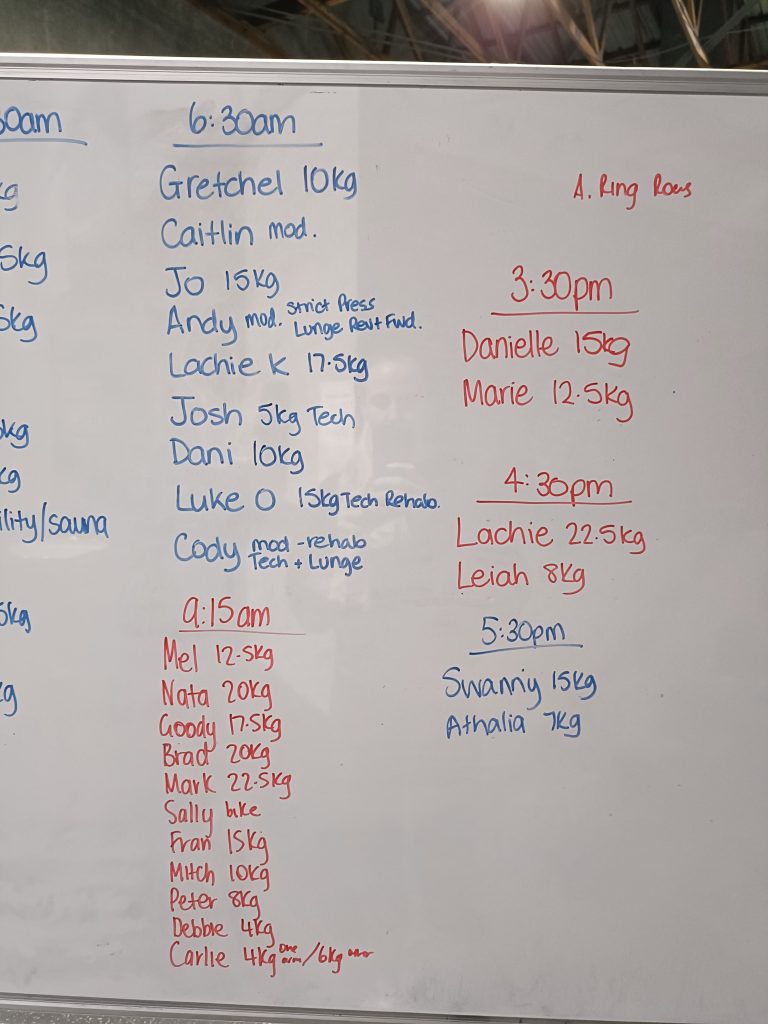 0am
kg
5kg
5kg
kg
kg
ility/sauna
5kg
g
6:30am
Gretchel 10kg
Caitlin mod.
Jo 15kg
Andy mod. Strict Press
Lunge Rev+ Fwd.
Lachie K 17.5kg
Josh 5kg Tech
Dani 10kg
Luke O 15kg Tech Rehab.
Cody mod - rehab
Tech + Lunge
9:15am
Mel 12.5kg
Nata 20kg
Goody 17.5kg
Brad 20kg
Mark 22.5kg
Sally bike
Fran 15kg
Mitch 10kg
Peter 8kg
Debbie 4kg
Carlie 4kg one arm/6kg
A. Ring Rows
3:30pm
Danielle 15kg
Marie 12.5kg
4:30pm
Lachie 22.5kg
Leiah 8kg
5:30pm
Swanny 15kg
Athalia 7kg